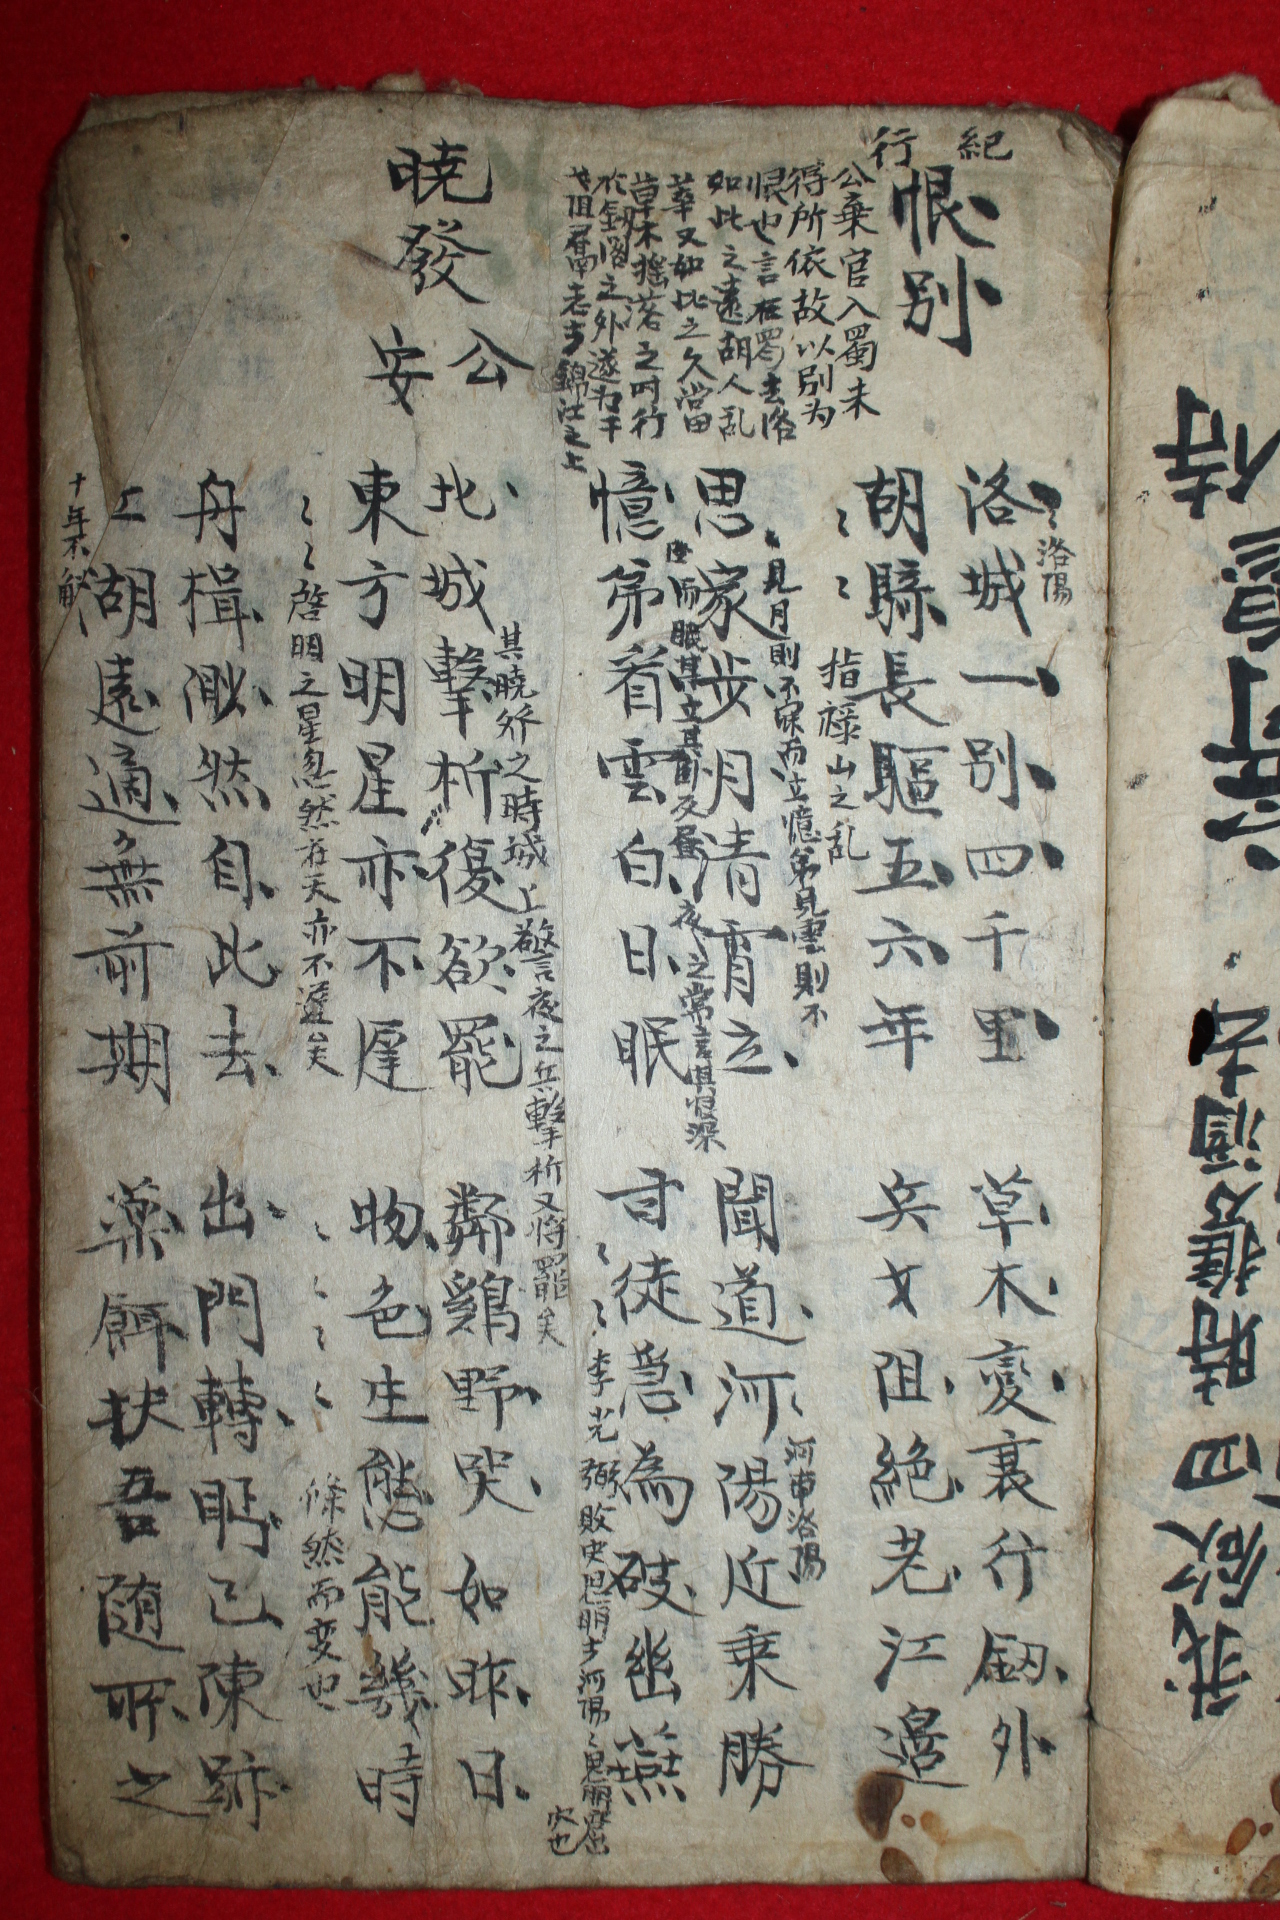 紀行
恨别
公棄官入蜀未
得所依故以别为
恨也言在蜀去洛
如此之遠胡人乱
華又如此之久當
草木搖落之时行
於釼阁之外遂为干
戈阻隔而老于錦江之上
洛城一别四千里
草木變衰行釼外
洛陽
胡騎長驅五六年
兵戈阻絶老江邊
指禄山之乱
思家步月清霄立
聞道河陽近乗勝
見月則不寐而立憶弟見雲則不
河南洛陽
憶弟看雲白日眠
司徒急為破幽燕
而眠其立其眠反昼夜之常言其恨深
李光弼敗史思明于河陽
曉發公安
北城擊柝復欲罷
鄰鷄野哭如昨日
其曉斧之時城上警夜之兵擊柝又将罷矣
東方明星亦不遅
物色生態能幾時
啓明之星忽然在天亦不遅矣
條然而变也
舟楫渺然自此去
出門轉眄已陳跡
江湖遠適無前期
藥餌扶吾随所之